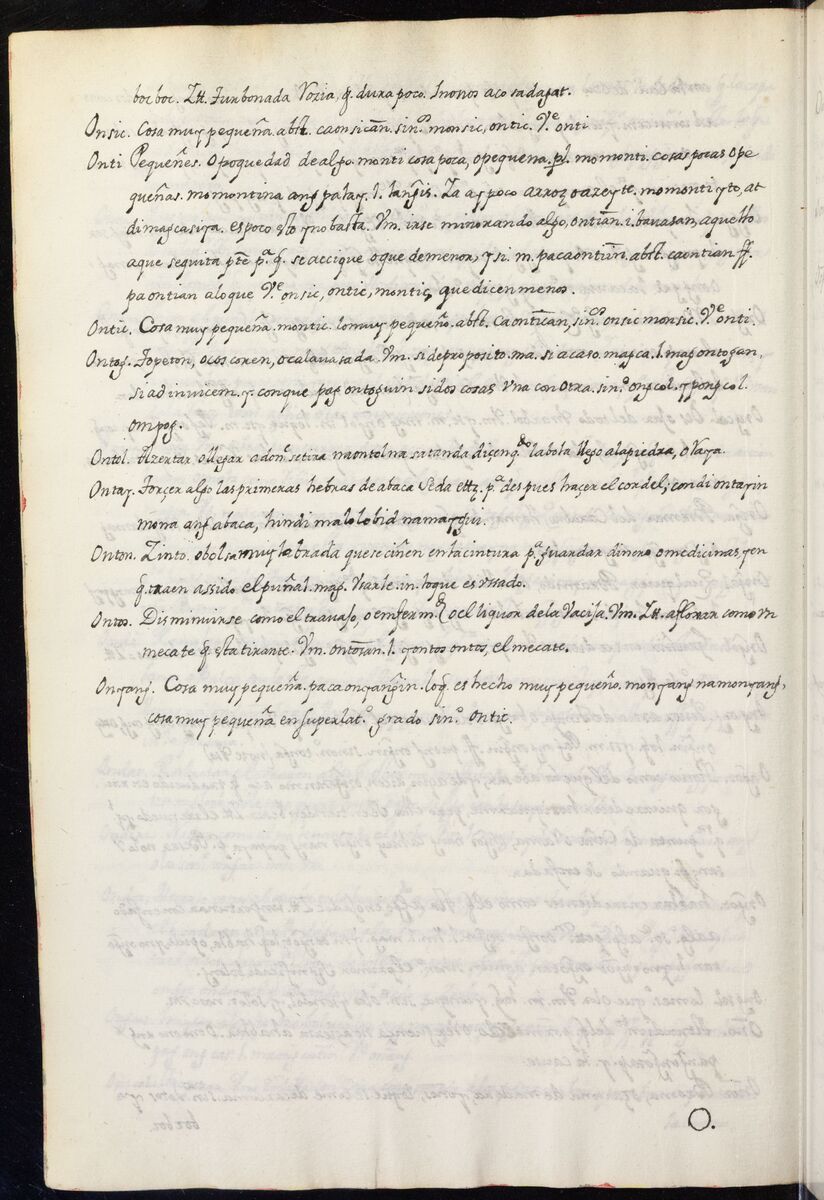 boc boc. Ztt. Turbonada Rozia, q. dura poco. Inosros aco sa dagat.
Onsic. Cosa muy pequeña. abst. caonsican. sin.º monsic, ontic. Vᵉ onti
Onti Pequeñes. O poquedad de algo. monti cosa poca, o pequena. pl. momonti. cosas pocas o pe
queñas. momontina ang palay. l. langis. Za ay poco arroz o azeyte. momonti yto, at
di magcasiya. es poco esto y no basta. Vm. irse minorando algo, ontian. i. bavasan, aquello
a que se quita pte pª q. se accique o que de menor, y si. m. pacaontiin. abst. caontian ff.
pa ontian a lo que Vᵉ onsic, ontic, montic, que dicen menos.
Ontic. Cosa muy pequeña. montic. lo muy pequeño. abst. caontican, sin.º onsic monsic. Vᵉ onti.
Ontog. Topeton, o coscorren, o calavasada. Vm. si de proposito. ma. si acaso. magca. l. mag ontogan,
si ad invicem. y. con que pag ontoguin si dos cosas una con otra. sin.º ongcol. y pongcol.
ompog.
Ontol. Azertar, o llegar a donᵉ se tira naontol na sa tanda dicen qᵈᵒ la bola llego a la piedra, o Raya.
Ontay. Torçer algo las primeras hebras de abaca seda ettz. pª despues haçer el cordel; condi ontayin
mona ang abaca, hindi malolobid na mayygui.
Onton. Zinto. o bolsa muy labrada que se ciñen en la cintura pª guardar dinero o medicinas y en
q. traen assido el puñal. mag. Usarle. in. lo que es ussado.
Ontos. Disminuirse como el travajo, o enferm.ᵈ o el liquor de la Vacija. Vm. Ztt. aflorar como un
mecate q. esta tirante. Vm. ontosan. l. yontos ontos, el mecate.
Onyang. Cosa muy pequeña. paca onyangin. lo q. es hecho muy pequeño. monyang na monyang,
cosa muy pequeña en superlat.º grado sin.º ontic.
O.